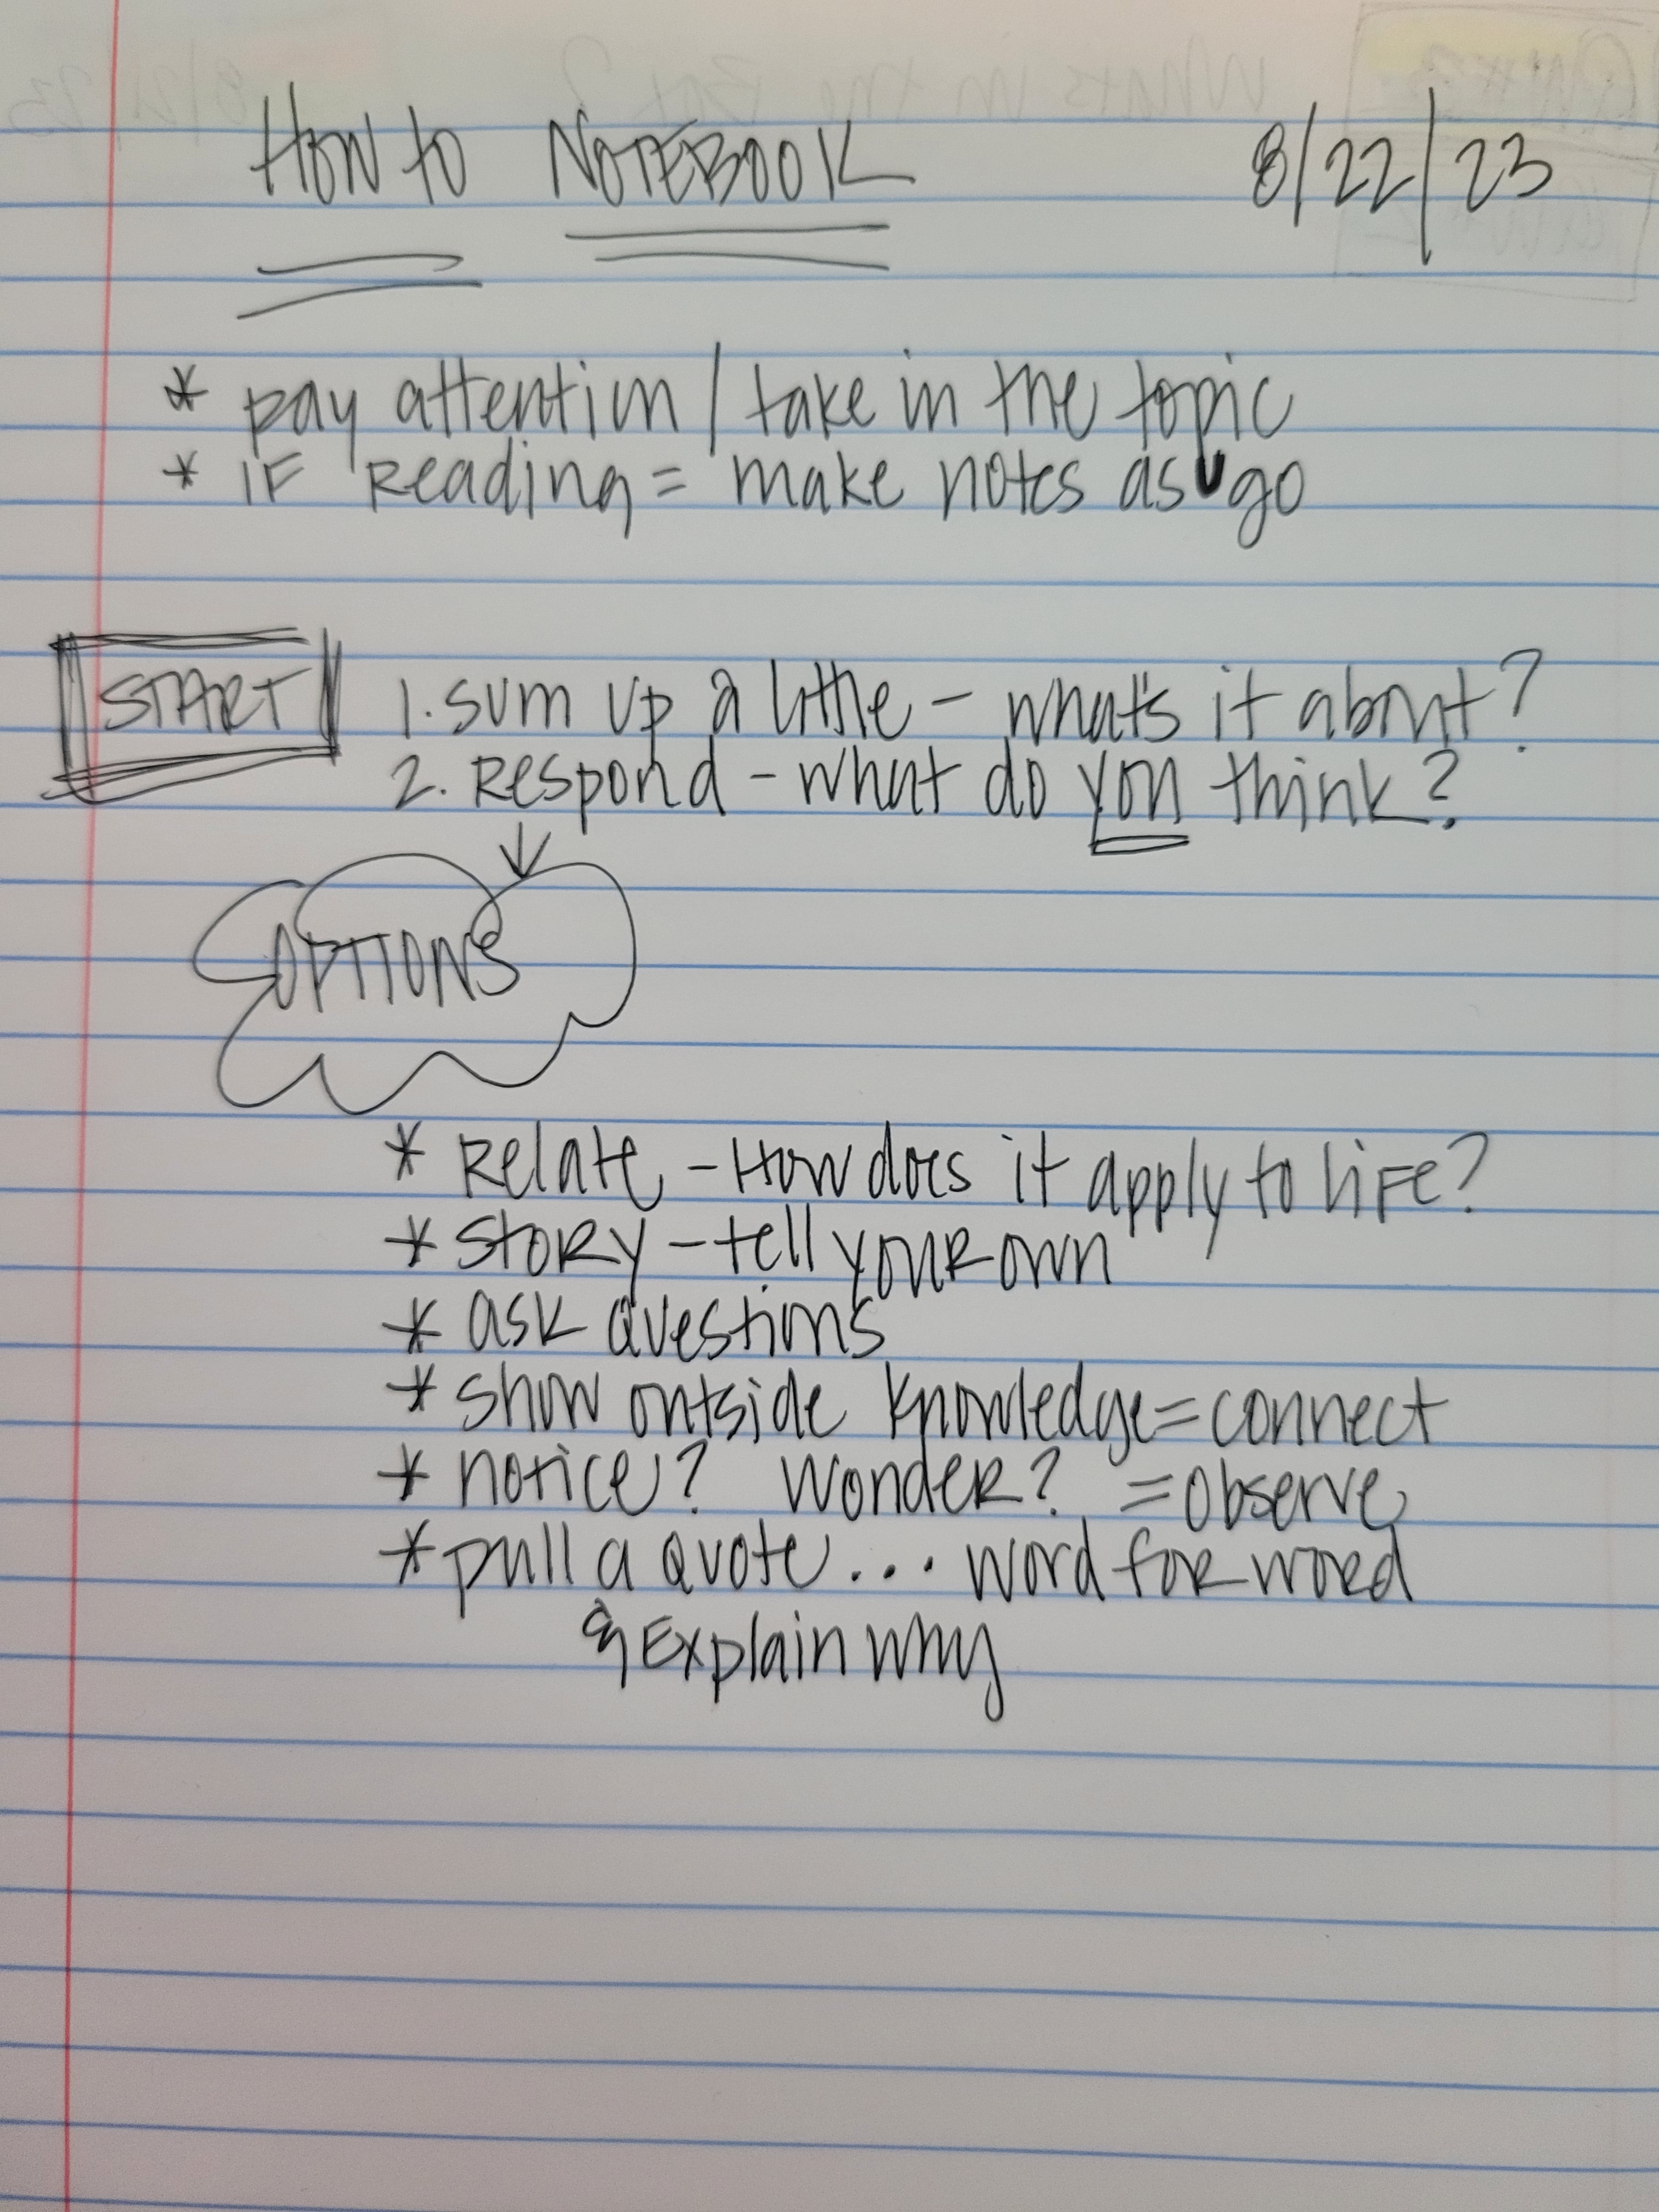 How to NOTEBOOK 8/22/23
* pay attention / take in the topic
* IF Reading = make notes as U go
START 1. sum up a little - what's it about?
2. Respond - what do you think?
OPTIONS
* Relate - How does it apply to life?
* STORY - tell your own
* ask questions
* show outside knowledge = connect
* notice? Wonder? = observe
* pull a quote... word for word
& Explain why